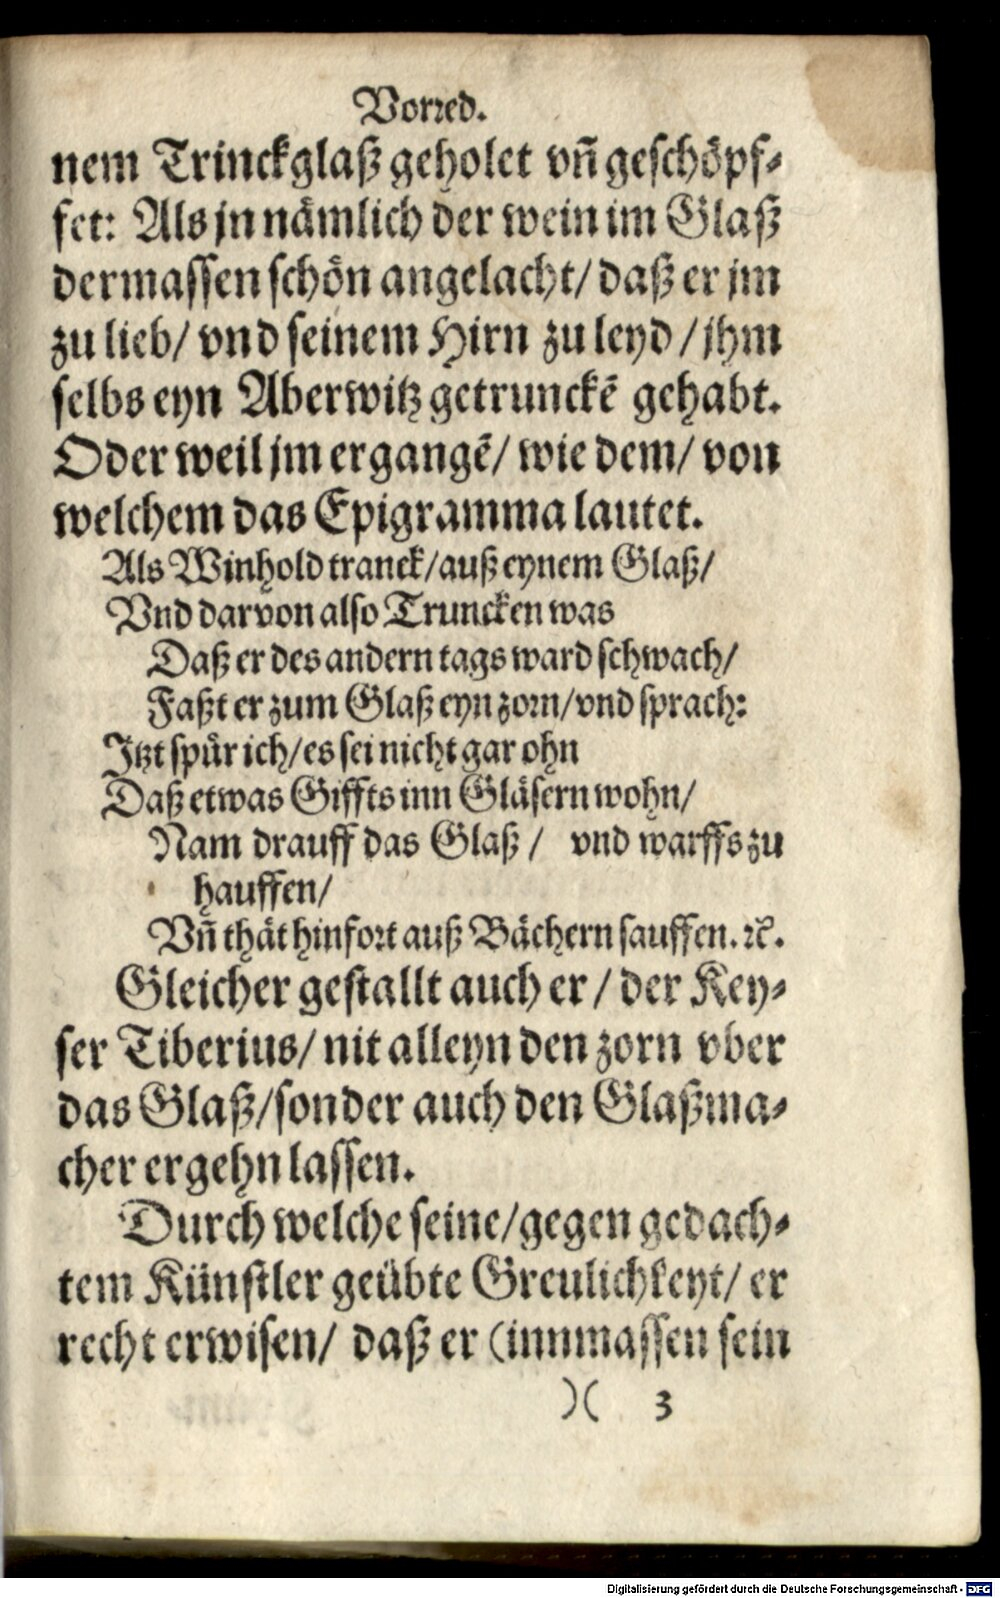 Vorred.
nem Trinckglaß geholet vñ geschöpf-
fet: Als jn nämlich der wein im Glaß
dermassen schön angelacht/ daß er jm
zu lieb/ vnd seinem Hirn zu leyd/ jhm
selbs eyn Aberwitz getrunckẽ gehabt.
Oder weil jm ergangẽ/ wie dem/ von
welchem das Epigramma lautet.
Als Winhold tranck/ auß eynem Glaß/
Vnd darvon also Truncken was
Daß er des andern tags ward schwach/
Faßt er zum Glaß eyn zorn/ vnd sprach:
Jtzt spür ich/ es sei nicht gar ohn
Daß etwas Giffts inn Gläsern wohn/
Nam drauff das Glaß/ vnd warffs zu
hauffen/
Vñ thät hinfort auß Bächern sauffen. ꝛc̃.
Gleicher gestallt auch er/ der Key-
ser Tiberius/ nit alleyn den zorn vber
das Glaß/ sonder auch den Glaßma-
cher ergehn lassen.
Durch welche seine/ gegen gedach-
tem Künstler geübte Greulichkeyt/ er
recht erwisen/ daß er (innmassen sein
)( 3
Digitalisierung gefördert durch die Deutsche Forschungsgemeinschaft - DFG